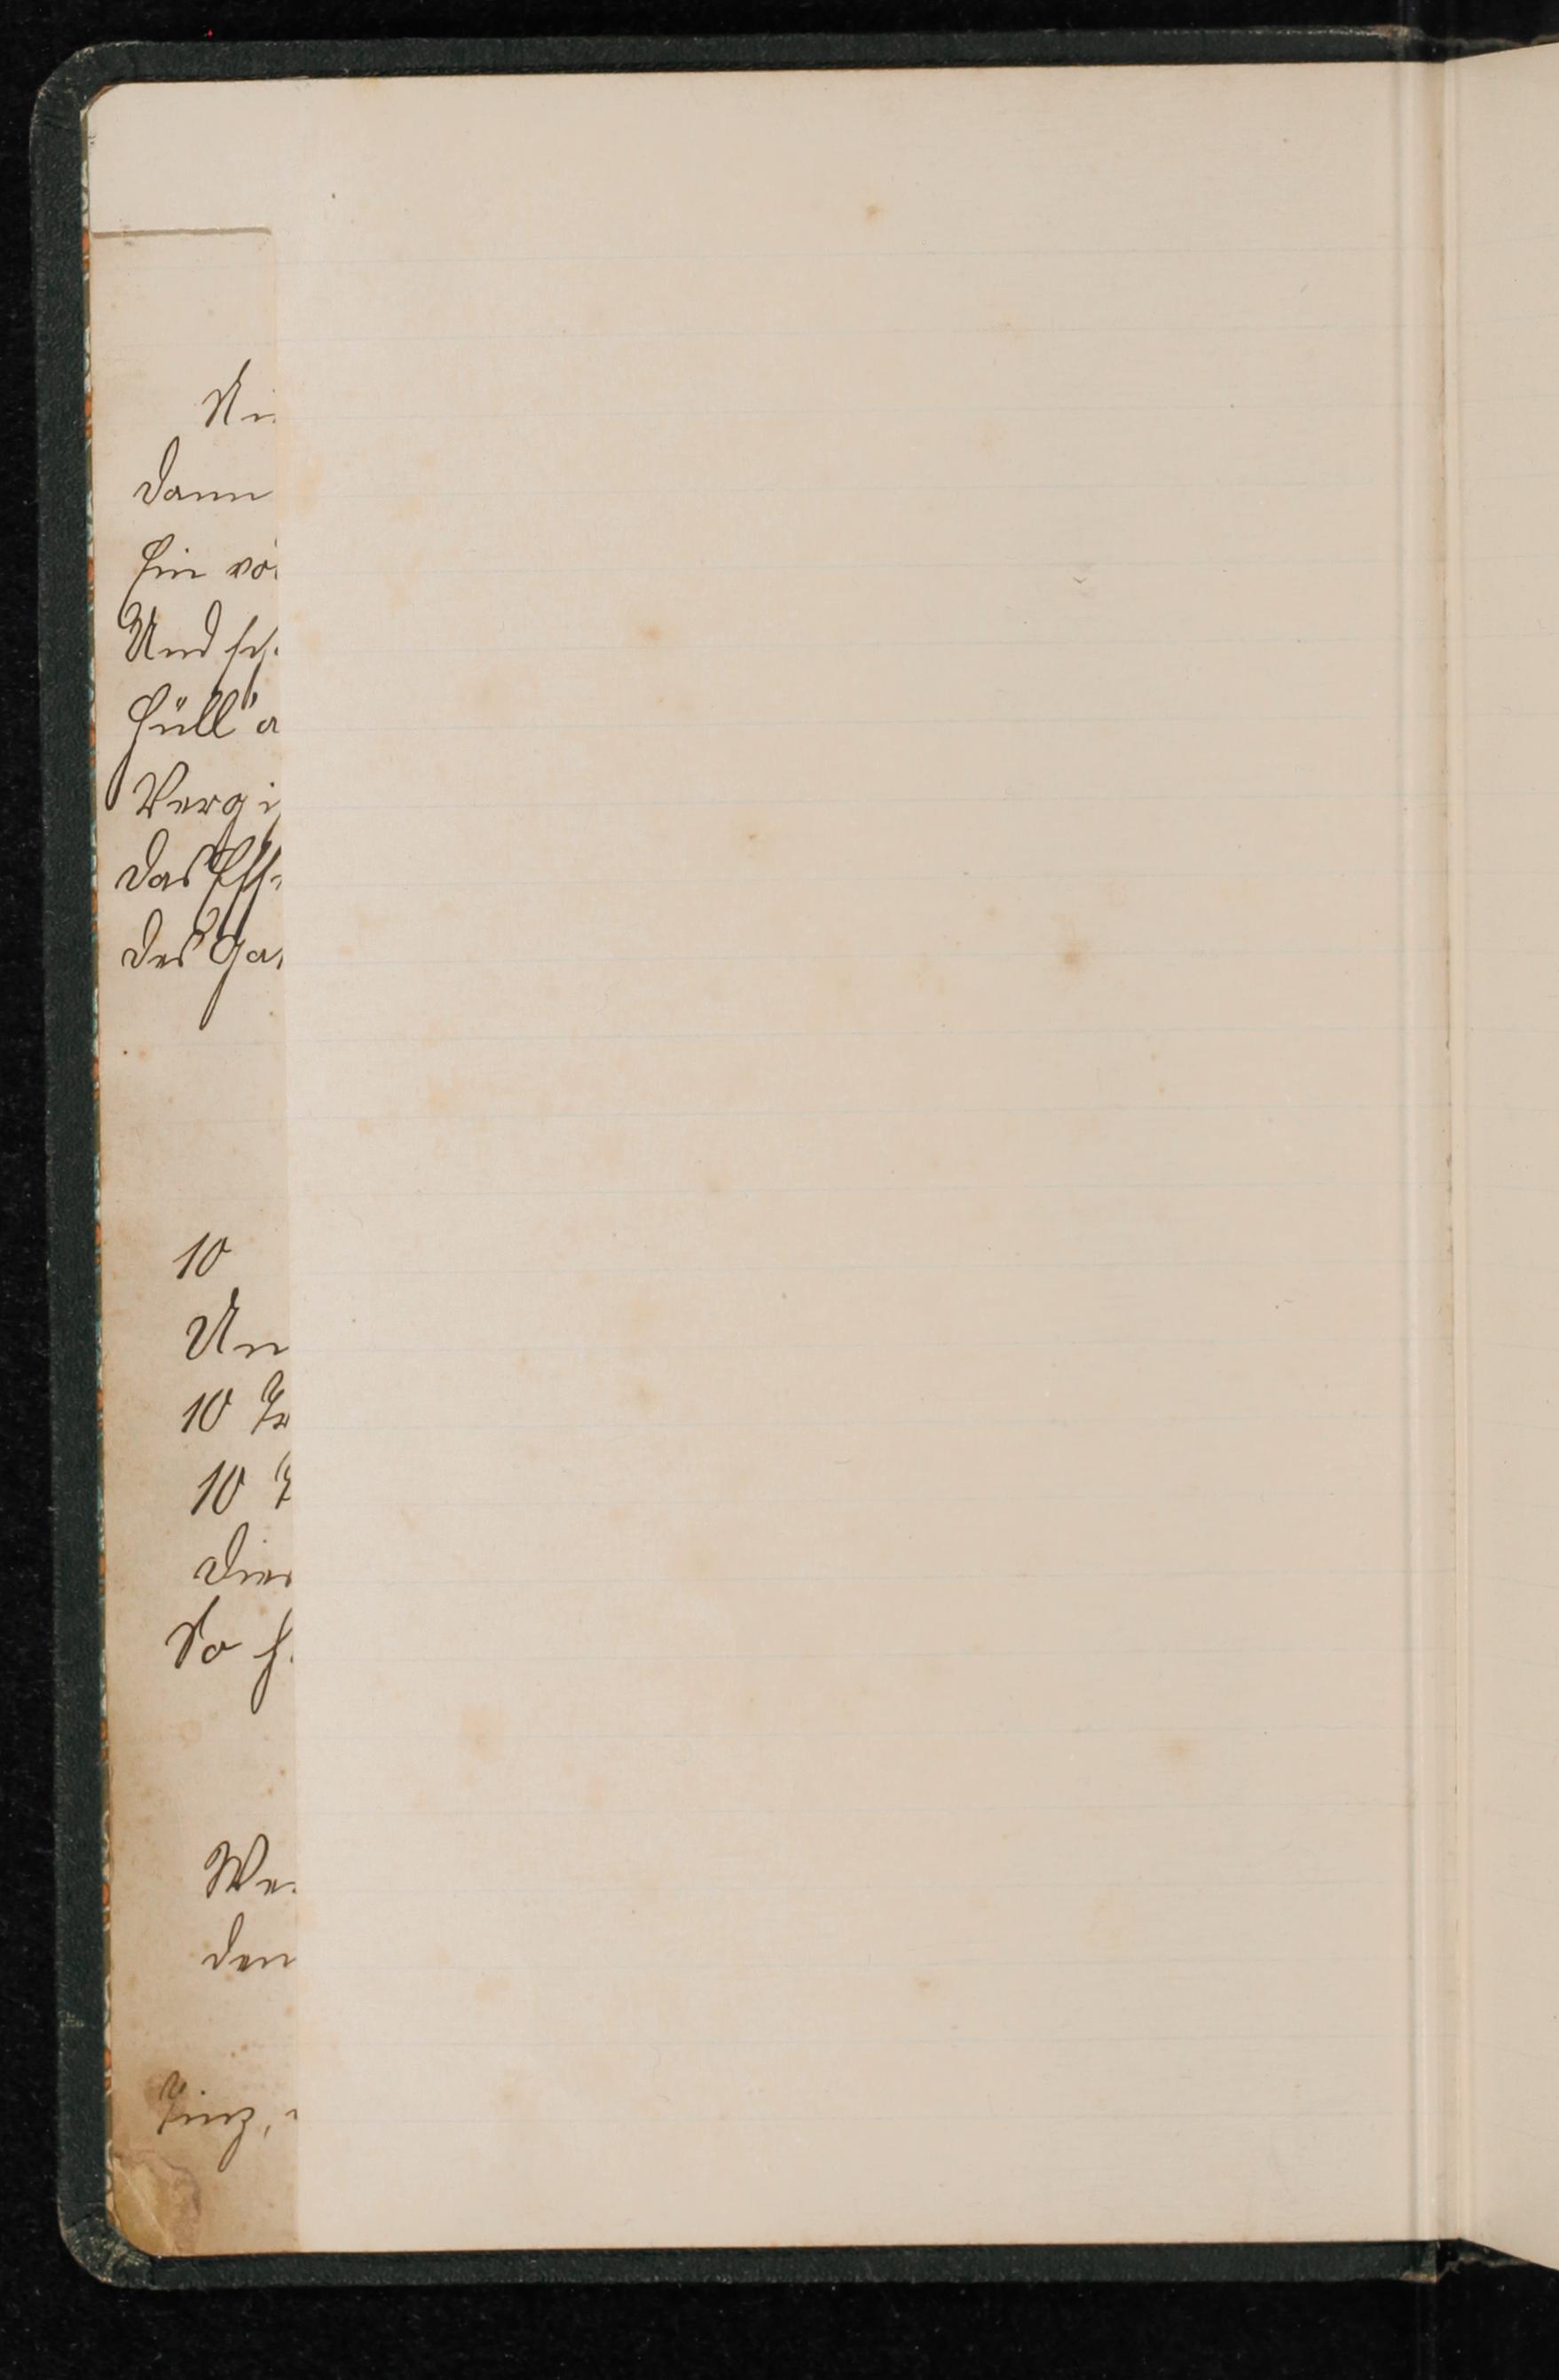 Ni
dann
Ein vo
Und sch
Hüll' a
Vergi
das Ess
des Ga
10
Un
10 Tr
10 T
dies
So h
We
den
Linz,